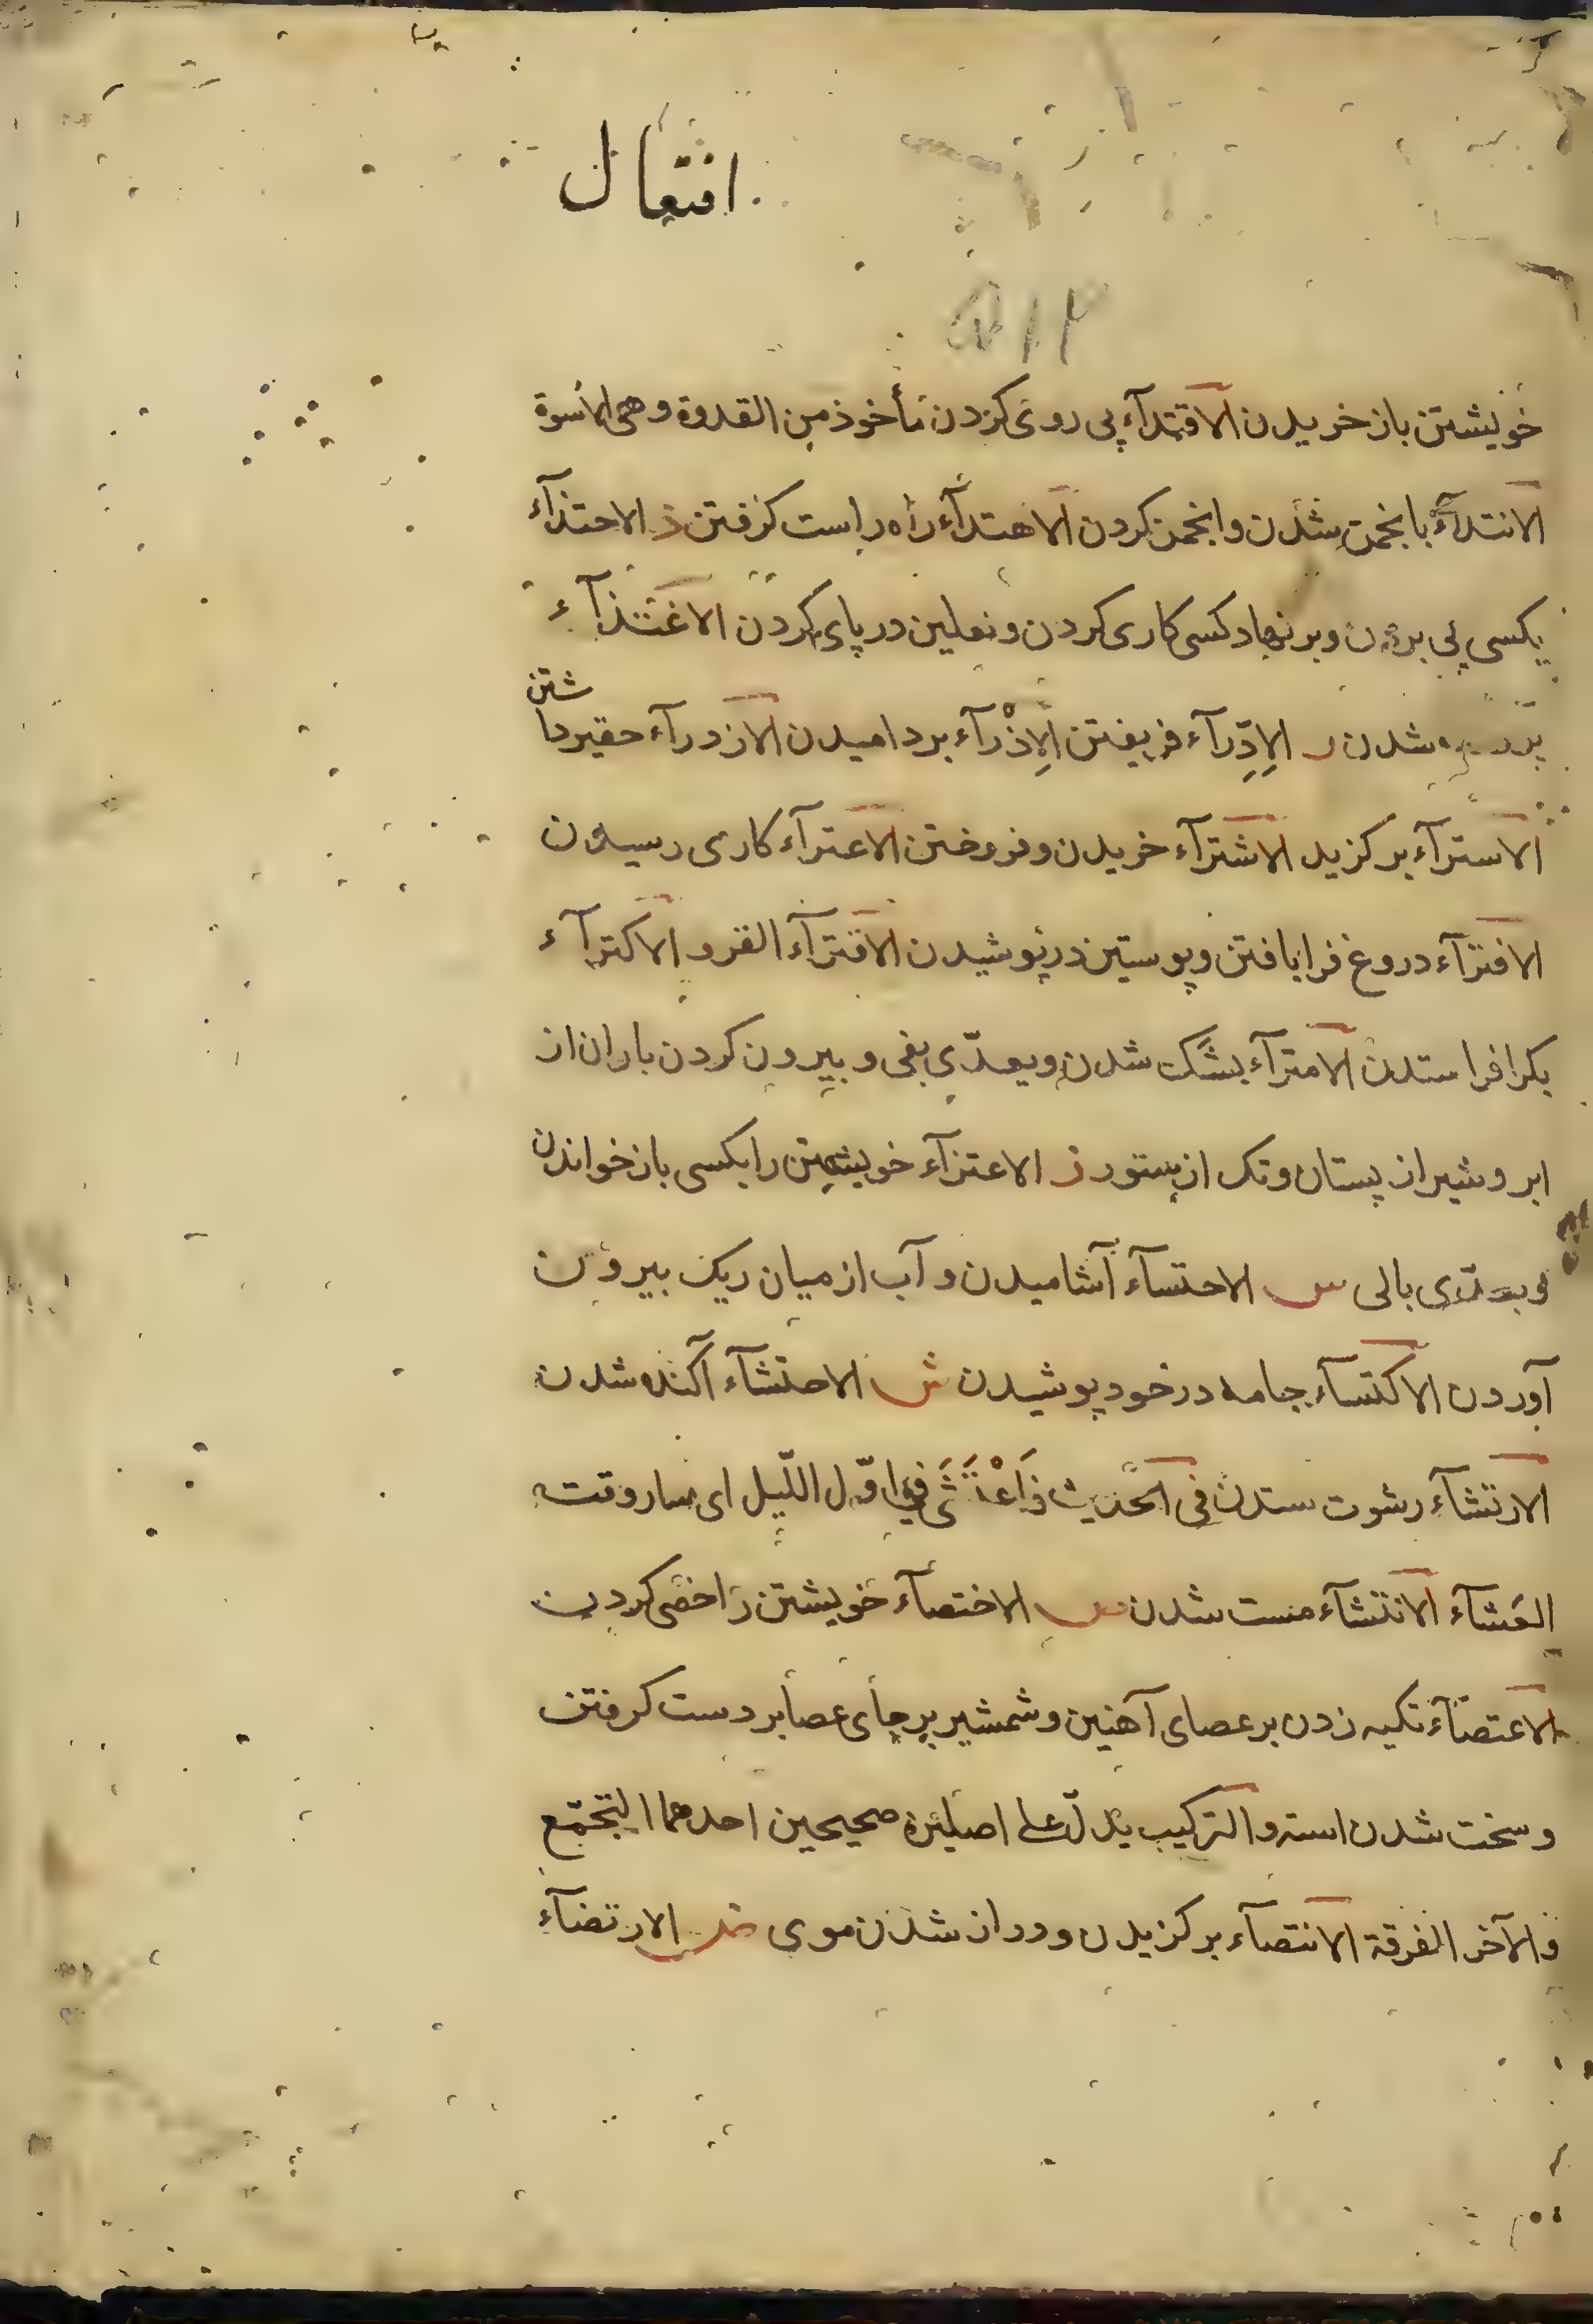 افتعال
خویشتن باز خریدن الاقتدآء پی روی کردن مأخوذ من القدوة وهی الأسوة
الانتدآء بانجمن شدن وانجمن کردن الاهتدآء راه راست کرفتن ذ الاحتذآء
بکسی پی بردن وبر نهاد کسی کاری کردن ونعلین در پای کردن الاغتذآء
شدن ر الاِدِّرآء فریفتن الاِذْرآء بردامیدن الازدرآء حقیر داشتن
الاسترآء برکزید الاشترآء خریدن وفروختن الاعترآء کاری رسیدن
الافترآء دروغ فرا بافتن وپوستین درپوشیدن الافترآء الفرو الاکترآء
بکرا فراستدن الامترآء بشک شدن ویعدّی بفی وبیرون کردن باران از
ابر وشیر از پستان وتک از ستور ز الاعتزآء خویشتن را بکسی باز خواندن
ویعدّی بالی س الاحتسآء آشامیدن وآب از میان ریک بیرون
آوردن الاکتسآء جامه در خود پوشیدن ش الاحتشآء آکنده شدن
الارتشآء رشوت ستدن فی الحدیث فَاعْتَشَی فی اوّل اللّیل ای سار وقت
العشآء الانتشآء مست شدن ص الاختصآء خویشتن را خصی کردن
الاعتصآء تکیه زدن بر عصای آهنین وشمشیر بر جای عصا بر دست کرفتن
وسخت شدن استه والترکیب یدلّ علی اصلین صحیحین احدهما التجمّع
والآخر الفرقة الانتصآء برکزیدن ودراز شدن موی ض الارتضآء